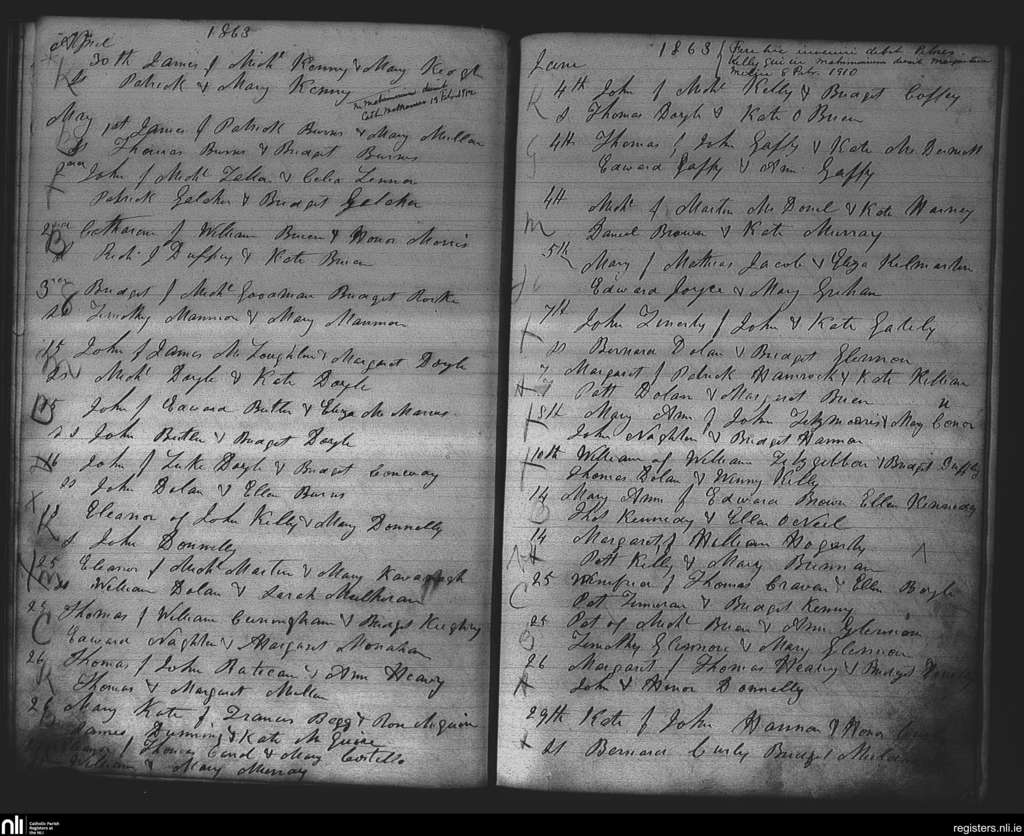 1863
April
K 30th James of Michl Kenny & Mary Keogh
Ss Patrick & Mary Kenny
matrimonium duxit
Cath. 1912
May 1st James of Patrick Burns & Mary Mullan
Ss Thomas Burns & Bridget Burns
2nd John of Michl & Celia Lennon
Patrick Gelcher & Bridget Gelcher
2nd Catharine of William Brien & Honor Morris
B Richd J Duffey & Kate Brien
3rd Bridget of Michl Goodman Bridget Rorke
Ss Timothy Mannion & Mary Mannion
15 John of James McLoughlin & Margaret Doyle
Ss Michl Doyle & Kate Doyle
15 John of Edward Butler & Eliza McManus
Ss John Butler & Bridget Doyle
16 John of Luke Doyle & Bridget Conway
Ss John Dolan & Ellen Burns
Eleanor of John Kelly & Mary Donnelly
K S John Donnelly
25 Eleanor of Michl Martin & Mary Kavanagh
William Dolan & Sarah Mulheran
Thomas of William Cuningham & Bridget
C Edward Naghten & Margaret Monahan
26 Thomas of John & Ann Heavy
Thomas & Margaret Mullen
Mary Kate of Francis Begg & Rose McGuire
James & Kate McGuire
of Thomas & Mary Costello
William & Mary Murray
1863
Kelly qui in matrimonium duxit
8 Febr. 1910
June
K 4th John of Michl Kelly & Bridget Coffey
S Thomas Doyle & Kate OBrien
G 4th Thomas of John Gaffy & Kate McDermott
Edward Gaffy & Ann Gaffy
4th Michl of Martin McDonel & Kate Harney
M Daniel Brown & Kate Murray
5th Mary of Mathias Jacob & Eliza Kilmartin
Edward Joyce & Mary Grehan
7th John of John & Kate Gately
Ss Bernard Dolan & Bridget Glennon
7 Margaret of Patrick Hamrock & Kate Killian
H Patt Dolan & Margaret Brien
8th Mary Ann of John Fitzmorris & Mary Conor
John Naghten & Bridget Hannon
10th William of William Fitzgibbon & Bridget Duffy
Thomas Dolan & Winny Kelly
14 Mary Ann of Edward Brown Ellen Kennedy
Thos Kennedy & Ellen ONeil
14 Margaret of William Hogarty
H Patt Kelly & Mary Brennan
25 Winifred of Thomas Craven & Ellen Boyle
C Patt & Bridget Kenny
25 Pat of Michl Brien & Ann Glennon
Timothy Glennon & Mary Glennon
26 Margaret of Thomas Heavy & Bridget Donnelly
John & Honor Donnelly
29th Kate of John Hannon & Honor Curly
Ss Bernard Curly Bridget
nli
Catholic Parish
Registers at
the NLI
registers.nli.ie